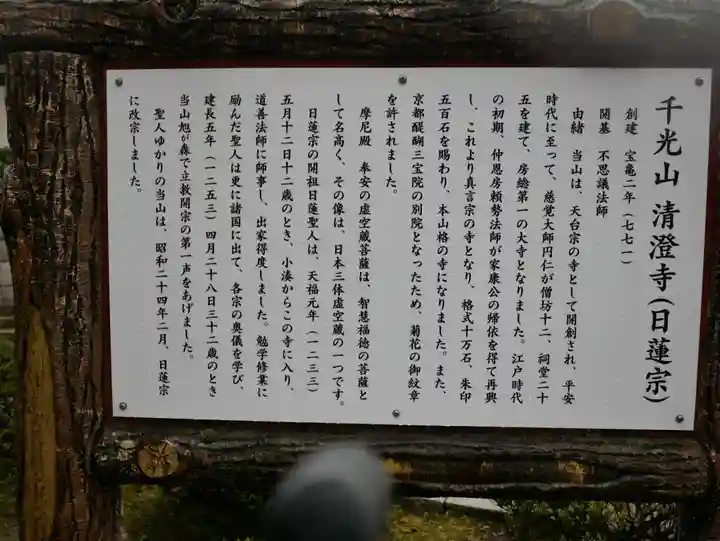 千光山 清澄寺(日蓮宗)
創建 宝亀二年(七七一)
開基 不思議法師
由緒 当山は、天台宗の寺として開創され、平安
時代に至って、慈覚大師円仁が僧坊十二、祠堂二十
五を建て、房総第一の大寺となりました。江戸時代
の初期、仲恩房頼勢法師が家康公の帰依を得て再興
し、これより真言宗の寺となり、格式十万石、朱印
五百石を賜わり、本山格の寺になりました。また、
京都醍醐三宝院の別院となったため、菊花の御紋章
を許されました。
摩尼殿 奉安の虚空蔵菩薩は、智慧福徳の菩薩と
して名高く、その像は、日本三体虚空蔵の一つです。
日蓮宗の開祖日蓮聖人は、天福元年(一二三三)
五月十二日十二歳のとき、小湊からこの寺に入り、
道善法師に師事し、出家得度しました。勉学修業に
励んだ聖人は更に諸国に出て、各宗の奥儀を学び、
建長五年(一二五三)四月二十八日三十二歳のとき
当山旭が森で立教開宗の第一声をあげました。
聖人ゆかりの当山は、昭和二十四年二月、日蓮宗
に改宗しました。